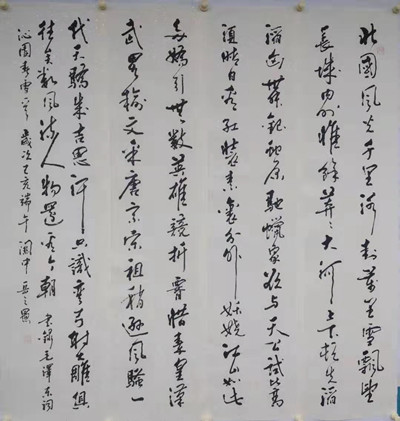 北國風光千里冰封萬里雪飄望
長城內外惟餘莽〻大河上下頓失滔
滔山舞銀蛇原馳蠟象欲與天公試比高
須晴日看紅裝素裹分外妖嬈江山如此
多嬌引無數英雄競折腰惜秦皇漢
武畧輸文采唐宗宋祖稍遜風騷一
代天驕成吉思汗只識彎弓射大雕俱
往矣數風流人物還看今朝 毛澤東詞
沁園春雪 歲次亥端午 閬中